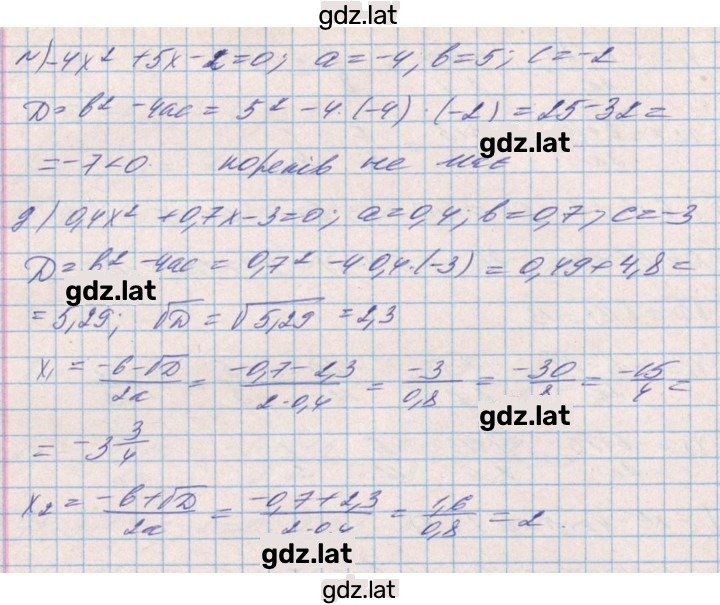 gdz.lat
г) -4x² + 5x - 2 = 0; a = -4, b = 5; c = -2
D = b² - 4ac = 5² - 4·(-4)·(-2) = 25 - 32 =
gdz.lat
= -7 < 0. коренів не має
д) 0,4x² + 0,7x - 3 = 0; a = 0,4; b = 0,7; c = -3
D = b² - 4ac = 0,7² - 4·0,4·(-3) = 0,49 + 4,8 =
gdz.lat
= 5,29; √D = √5,29 = 2,3
x₁ = (-b - √D)/2a = (-0,7 - 2,3)/(2·0,4) = -3/0,8 = -30/8 = -15/4 =
gdz.lat
= -3 3/4
x₂ = (-b + √D)/2a = (-0,7 + 2,3)/(2·0,4) = 1,6/0,8 = 2.
gdz.lat
gdz.lat